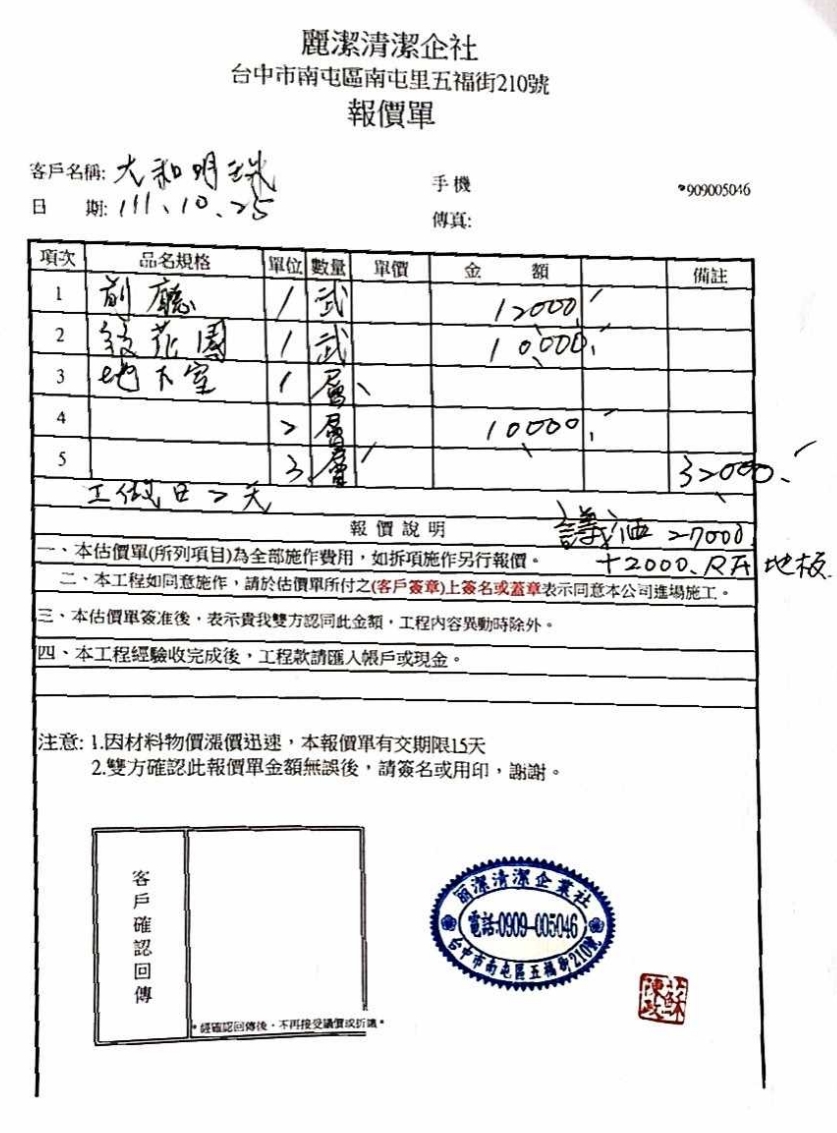 麗潔清潔企社
台中市南屯區南屯里五福街210號
報價單
客戶名稱: 大和明珠
手機 0909005046
日 期: 111、10、25
傳真:
項次 品名規格 單位 數量 單價 金 額 備註
1 前廳 1 式 12000
2 後花園 1 式 10000
3 地下室 1 層
4 2 層 10000
5 3 層 32000
工作 日 2 天
報價說明 議 27000
一、本估價單(所列項目)為全部施作費用,如拆項施作另行報價。 +2000、RF 地板
二、本工程如同意施作,請於估價單所付之(客戶簽章)上簽名或蓋章表示同意本公司進場施工。
三、本估價單簽准後,表示貴我雙方認同此金額,工程內容異動時除外。
四、本工程經驗收完成後,工程款請匯入帳戶或現金。
注意: 1.因材料物價漲價迅速,本報價單有交期限15天
2.雙方確認此報價單金額無誤後,請簽名或用印,謝謝。
客戶確認回傳
*經確認回傳後,不再接受議價或折讓*
麗潔清潔企業社
電話:0909-005046
台中市南屯區五福街210號